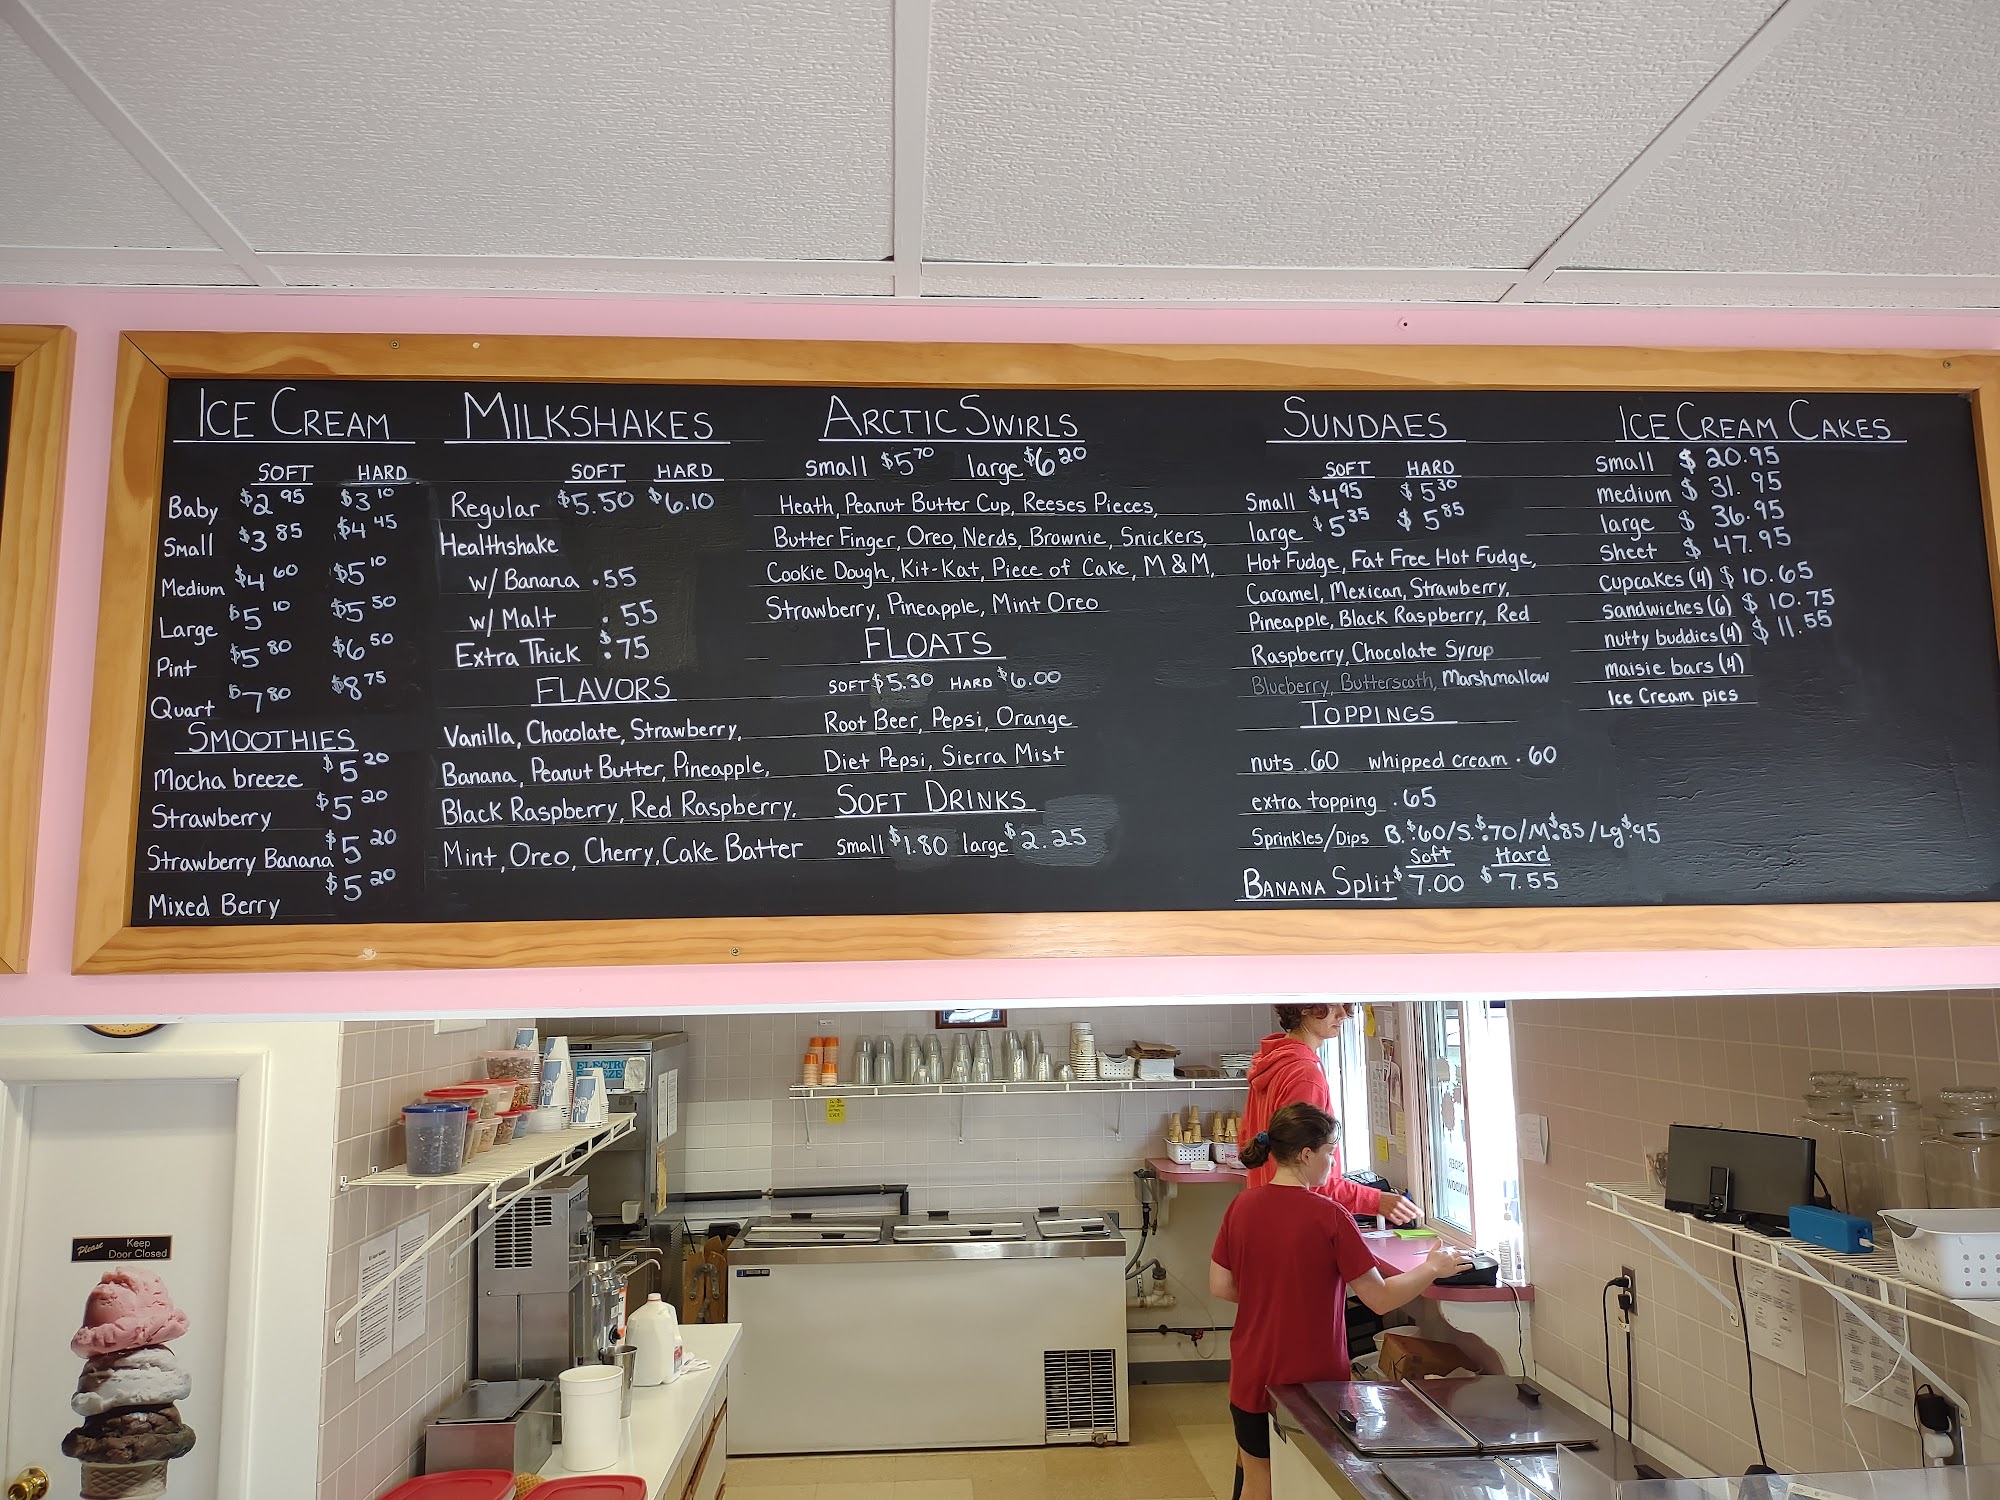 ICE CREAM
SOFT HARD
Baby $2.95 $3.10
Small $3.85 $4.45
Medium $4.60 $5.10
Large $5.10 $5.50
Pint $5.80 $6.50
Quart $7.80 $8.75
SMOOTHIES
Mocha breeze $5.20
Strawberry $5.20
Strawberry Banana $5.20
Mixed Berry $5.20
MILKSHAKES
SOFT HARD
Regular $5.50 $6.10
Healthshake
w/ Banana .55
w/ Malt .55
Extra Thick $.75
FLAVORS
Vanilla, Chocolate, Strawberry,
Banana, Peanut Butter, Pineapple,
Black Raspberry, Red Raspberry,
Mint, Oreo, Cherry, Cake Batter
ARCTIC SWIRLS
small $5.70 large $6.20
Heath, Peanut Butter Cup, Reeses Pieces,
Butter Finger, Oreo, Nerds, Brownie, Snickers,
Cookie Dough, Kit-Kat, Piece of Cake, M & M,
Strawberry, Pineapple, Mint Oreo
FLOATS
SOFT $5.30 HARD $6.00
Root Beer, Pepsi, Orange
Diet Pepsi, Sierra Mist
SOFT DRINKS
small $1.80 large $2.25
SUNDAES
SOFT HARD
Small $4.95 $5.30
large $5.35 $5.85
Hot Fudge, Fat Free Hot Fudge,
Caramel, Mexican, Strawberry,
Pineapple, Black Raspberry, Red
Raspberry, Chocolate Syrup
Blueberry, Butterscoth, Marshmallow
TOPPINGS
nuts .60 whipped cream .60
extra topping .65
Sprinkles/Dips B. $.60/S. $.70/M. $.85/Lg $.95
Soft Hard
BANANA Split $7.00 $7.55
ICE CREAM CAKES
small $20.95
medium $31.95
large $36.95
Sheet $47.95
cupcakes (4) $10.65
sandwiches (6) $10.75
nutty buddies (4) $11.55
maisie bars (4)
Ice Cream pies
Please Keep
Door Closed
ELECTRO
FREEZE
ORDER
WINDOW